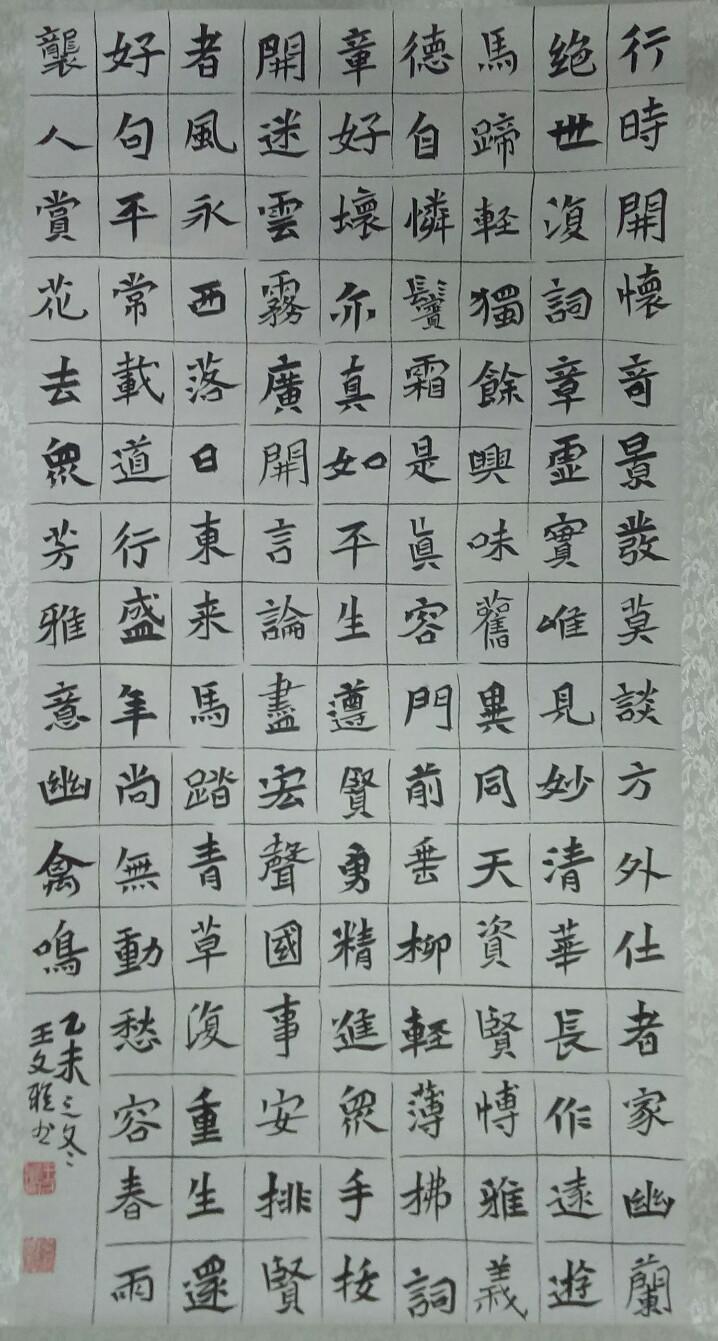 行時開懷奇景發莫談方外仕者家幽蘭
絶世復詞章靈實唯見妙清華長作遠遊
馬蹄輕獨餘興味舊異同天資賢博雅義
德自憐鬢霜是真容門前垂柳輕薄拂詞
章好壞亦真如平生遵賢勇精進眾手接
開迷雲霧廣開言論盡宏聲國事安排賢
者風永西落日東来馬踏青草復重生還
好句平常載道行盛年尚無動愁容春雨
襲人賞花去眾芳雅意幽禽鳴
乙未之冬
王文雅书